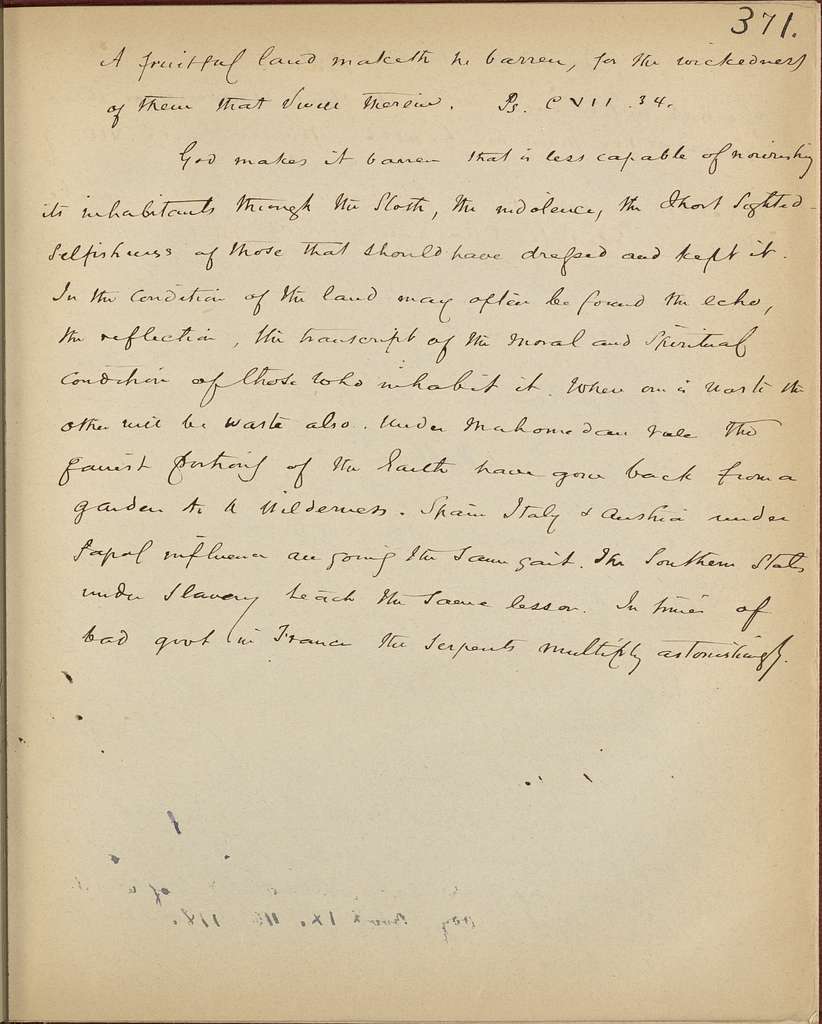 371.
A fruitful land maketh he barren, for the wickedness
of them that dwell therein. Ps. CVII. 34.
God makes it barren that is less capable of nourishing
its inhabitants through the Sloth, the indolence, the Short Sighted
Selfishness of those that should have dressed and kept it.
In the Condition of the land may often be found the echo,
the reflection, the transcript of the Moral and Spiritual
Condition of those who inhabit it. When one is waste the
other will be waste also. Under Mahomedan rule the
fairest portions of the Earth have gone back from a
garden to a Wilderness. Spain Italy & Austria under
Papal influence are going the same gait. The Southern States
under Slavery teach the same lesson. In times of
bad govt in France the serpents multiply astonishingly.